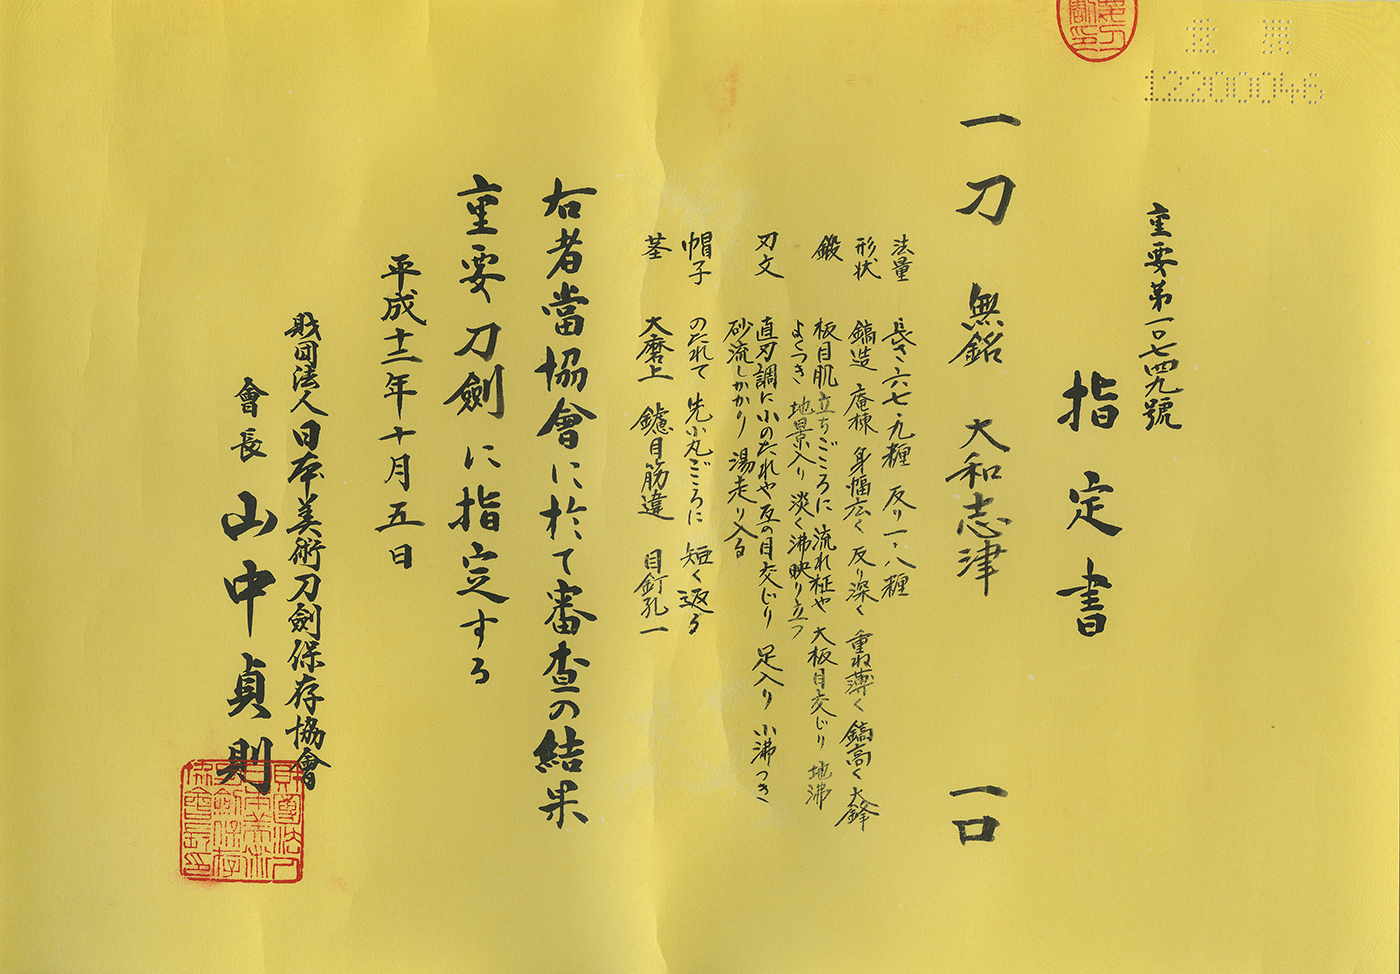 12200046
重要第一〇七四九號
指定書
一刀 無銘 大和志津 一口
法量 長さ六七・九糎 反り一・八糎
形状 鎬造 庵棟 身幅広く 反り深く 重ね薄く 鎬高く 大鋒
鍛 板目肌立ちごころに 流れ柾や 大板目交じり 地沸
よくつき 地景入り 淡く沸映り立つ
刃文 直刃調に小のたれや互の目交じり 足入り 小沸つき
砂流しかかり 湯走り入る
帽子 のたれて 先小丸ごころに 短く返る
茎 大磨上 鑢目筋違 目釘孔一
右者當協會に於て審査の結果
重要刀劍に指定する
平成十二年十月五日
財団法人日本美術刀劍保存協會
會長 山中貞則